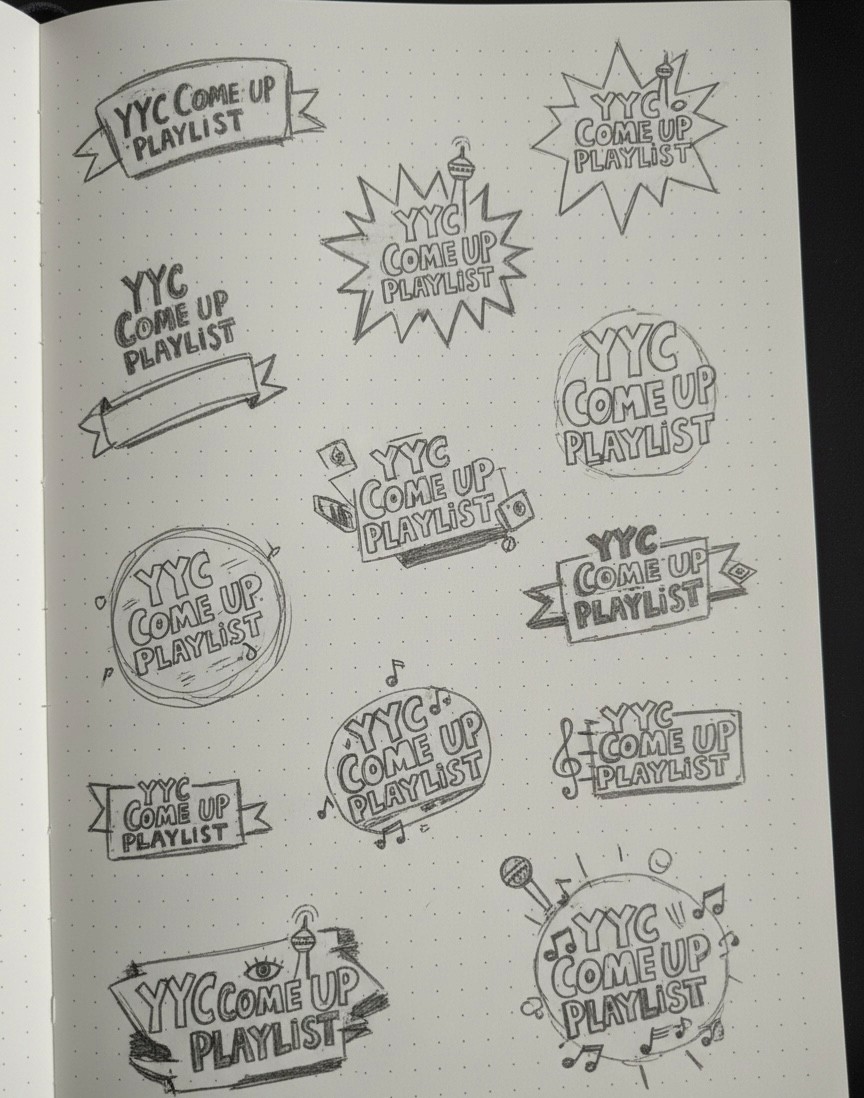 YYC COME UP
PLAYLIST
YYC
COME UP
PLAYLIST
YYC
COME UP
PLAYLIST
YYC
COME UP
PLAYLIST
YYC
COME UP
PLAYLIST
YYC
COME UP
PLAYLIST
YYC
COME UP
PLAYLIST
YYC
COME UP
PLAYLIST
YYC
COME UP
PLAYLIST
YYC
COME UP
PLAYLIST
YYC
COME UP
PLAYLIST
YYC COME UP
PLAYLIST
YYC
COME UP
PLAYLIST